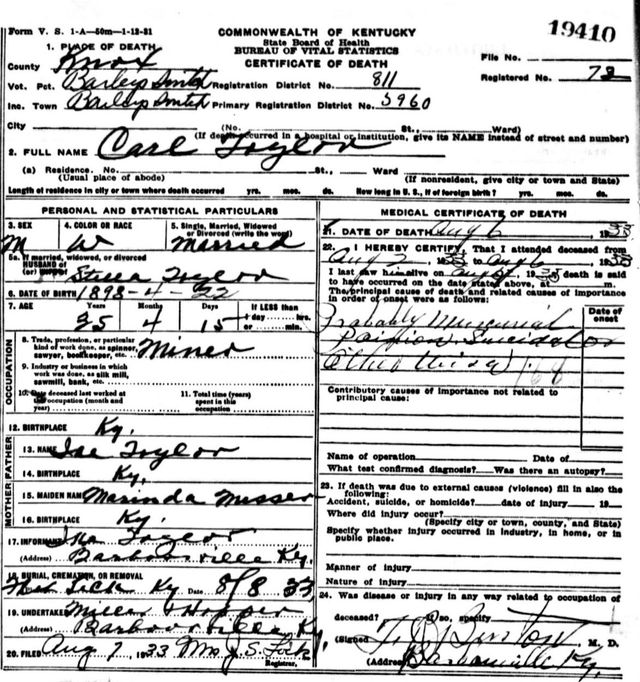 Form V. S. 1-A—50m—1-12-31
COMMONWEALTH OF KENTUCKY
State Board of Health
BUREAU OF VITAL STATISTICS
CERTIFICATE OF DEATH
19410
1. PLACE OF DEATH
County Knox
File No.
Registered No. 72
Vot. Pct. Registration District No. 811
Inc. Town Primary Registration District No. 5960
City (No. St., Ward)
(If death occurred in a hospital or institution, give its NAME instead of street and number)
2. FULL NAME Carl Taylor
(a) Residence. No. St., Ward
(Usual place of abode) (If nonresident, give city or town and State)
Length of residence in city or town where death occurred yrs. mos. ds. How long in U. S., if of foreign birth? yrs. mos. ds.
PERSONAL AND STATISTICAL PARTICULARS
3. SEX 4. COLOR OR RACE 5. Single, Married, Widowed or Divorced (write the word)
M W Married
5a. If married, widowed, or divorced
HUSBAND of
(or) Stella Taylor
6. DATE OF BIRTH 1898-4-22
7. AGE Years Months Days If LESS than
1 day hrs.
or min.
35 4 15
OCCUPATION
8. Trade, profession, or particular
kind of work done, as spinner,
sawyer, bookkeeper, etc. Miner
9. Industry or business in which
work was done, as silk mill,
sawmill, bank, etc.
10. Date deceased last worked at
this occupation (month and
year)
11. Total time (years)
spent in this
occupation
12. BIRTHPLACE Ky.
FATHER
13. NAME Taylor
14. BIRTHPLACE Ky.
MOTHER
15. MAIDEN NAME Marinda Messer
16. BIRTHPLACE Ky.
17. INFORMANT Taylor
(Address) Barbourville Ky.
18. BURIAL, CREMATION, OR REMOVAL
Lick Ky Date 8/8 33
19. UNDERTAKER Miller & Hopper
Barbourville Ky.
20. FILED Aug 7 1933 Mrs J. S. Lock
Registrar.
MEDICAL CERTIFICATE OF DEATH
21. DATE OF DEATH Aug 6 1933
22. I HEREBY CERTIFY, That I attended deceased from
Aug 2 1933 to Aug 6 1933
I last saw him alive on Aug 1933 death is said
to have occurred on the date stated above, at m.
The principal cause of death and related causes of importance
in order of onset were as follows:
Date of
onset
Probably Mercurial
Suicidal or
Otherwise 168
Contributory causes of importance not related to
principal cause:
Name of operation Date of
What test confirmed diagnosis? Was there an autopsy?
23. If death was due to external causes (violence) fill in also the
following:
Accident, suicide, or homicide? date of injury 19
Where did injury occur?
(Specify city or town, county, and State)
Specify whether injury occurred in industry, in home, or in
public place.
Manner of injury
Nature of injury
24. Was disease or injury in any way related to occupation of
deceased? If so, specify
(Signed M. D.
(Address) Barbourville Ky.